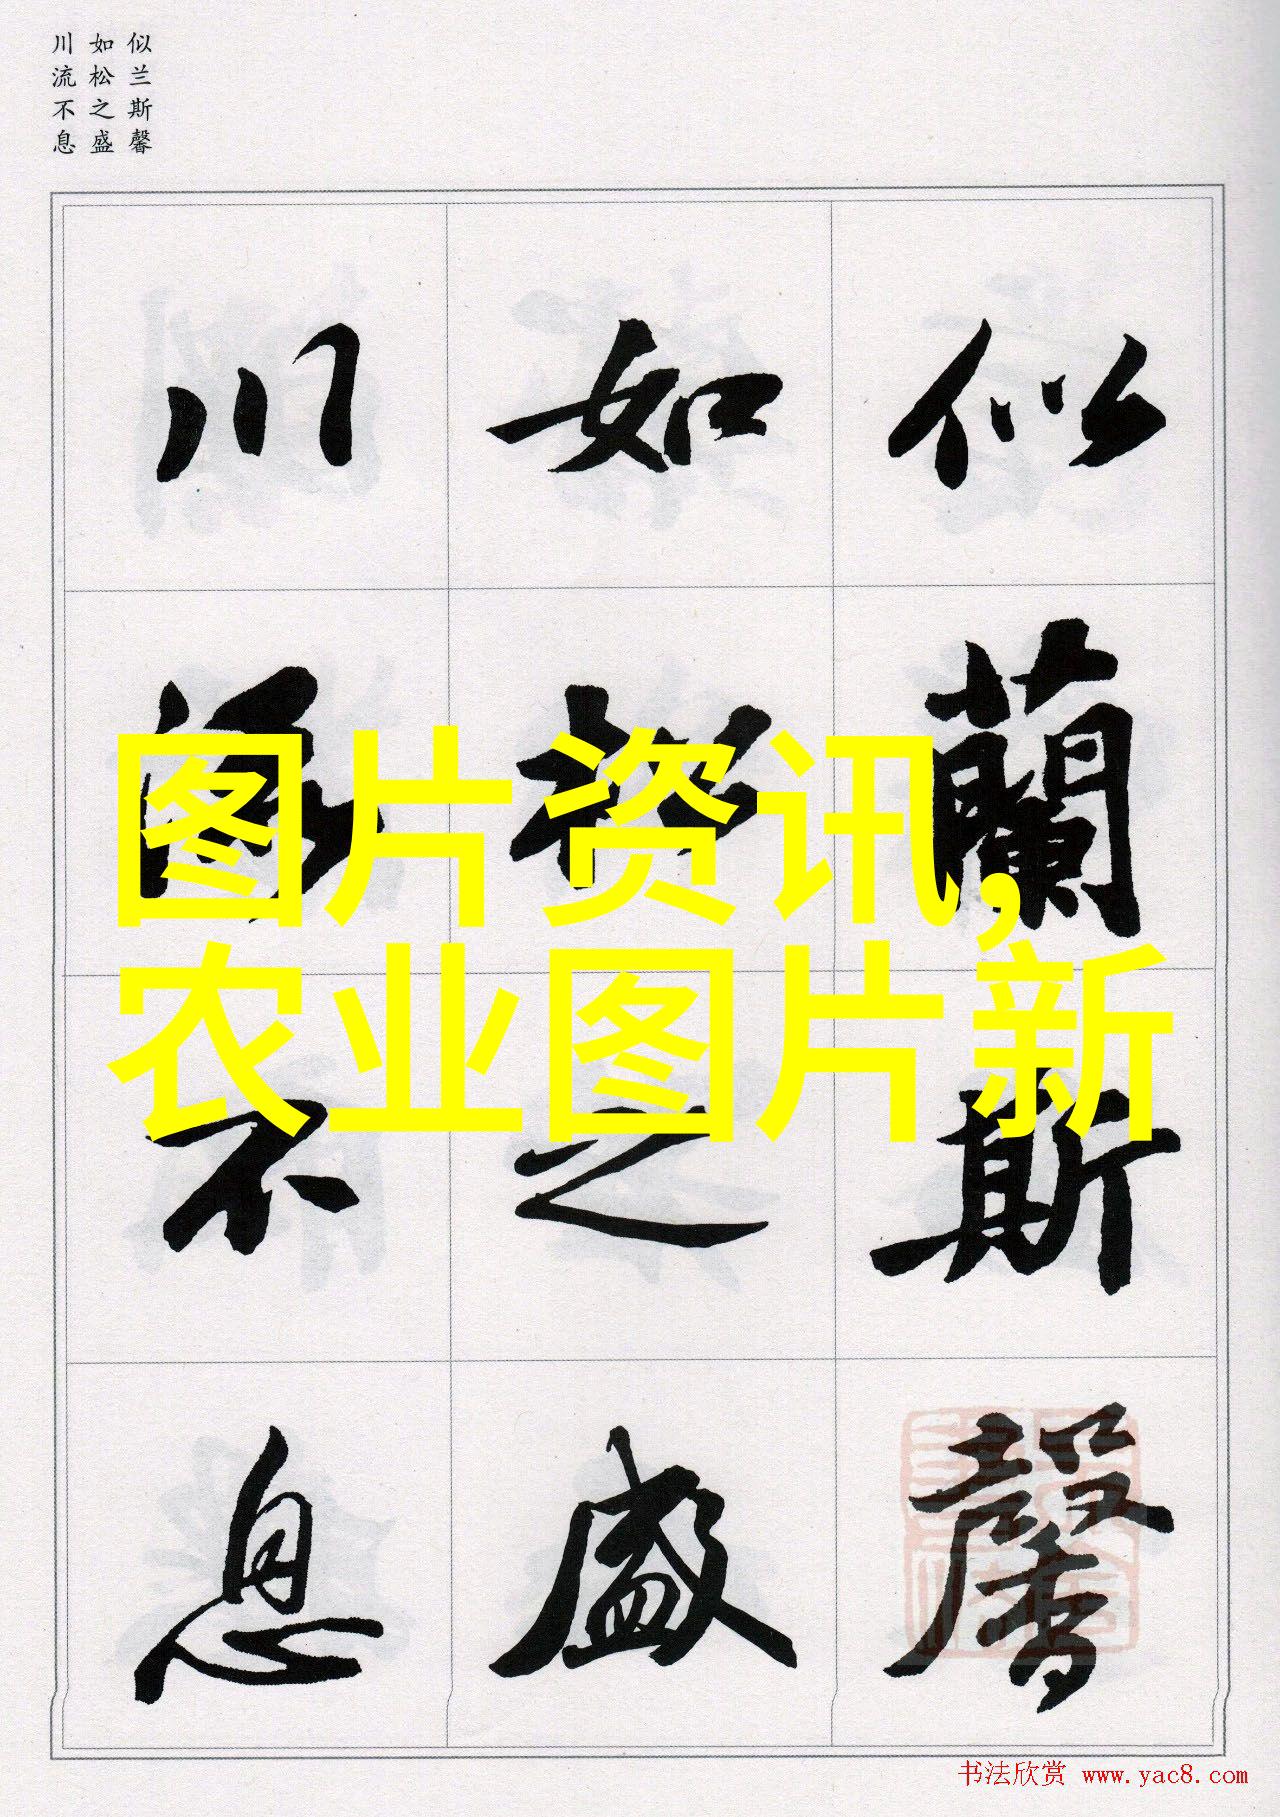 似兰斯馨
如松之盛
川流不息
似蘭斯馨
如松之盛
川流不息
图片资讯,
农业图片新
书法欣赏 www.yac8.com